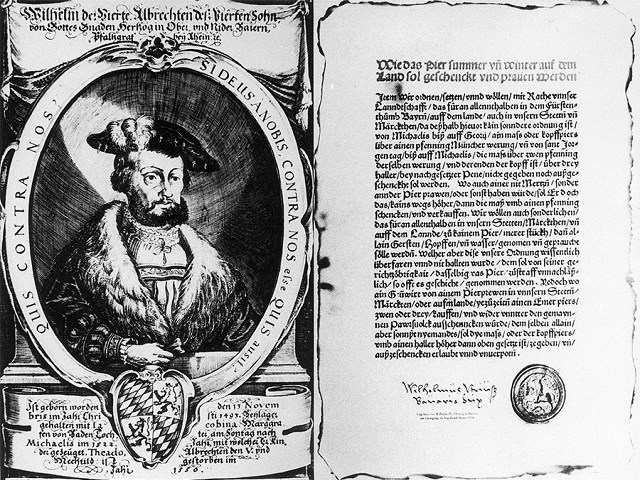 Wilhelm der Vierte Albrechten des Vierten Sohn,
von Gottes Gnaden Hertzog in Ober, vnd Nider Baiern,
Pfaltzgraf bey Rhein ꝛc.
SI DEUS A NOBIS CONTRA NOS esse QUIS ausit
QUIS CONTRA NOS
Ist geborn worden den 13 Novem
bris im Jahr Chri sti 1493. Beylager
gehalten mit Ja cobina Margara
fen von Baden Toch ter am Sontag nach
Michaelis im 1522. Jahr, mit welcher Er
gezeuget Theodo, Albrechten den V. vnd
Mechtild ist gestorben im
Jahr 1550.
Wie das Pier summer vñ winter auf dem
Land sol geschenckt vnd prauen werden
Item Wir ordnen/setzen/vnnd wöllen/mit Rathe vnnser
Lanndtschafft/das für an allennthalben in dem Fürsten-
thůmb Bayrn/auff dem lande/auch in vnsern Stettñ vñ
Märckthen/da deßhalb hieuor kain sonndere ordnung ist/
von Michaelis biß auff Georij/ain mass oder kopffpiers
über ainen pfenning Müncher werung/vñ von sant Jor-
gentag/biß auff Michaelis/die mass über zwen pfenning
derselben werung/vnd derenden der kopff ist/über drey
haller/bey nachgesetzter Pene/nicht gegeben noch außge-
schenckht sol werden. Wo auch ainer nit Mertzñ/sonder
annder Pier prawen/oder sonst haben würde/sol Er doch
das/kains wegs höher/dann die mass vmb ainen pfenning
schencken/vnd verkauffen. Wir wöllen auch sonderlichen/
das füran allenthalben in vnsern Stettñ/Märckthen/vñ
auff dem Lannde/zů kainem Pier/merer stückh/dañ al-
lain Gersten/Hopffen/vñ wasser/genomen vñ gepraucht
sölle werdñ. Welher aber dise vnsere Ordnung wissentlich
überfaren vnnd nit hallten wurde/dem sol von seiner ge-
richtzöbrigkait/dasselbig vas Pier/zůstraff vnnachläß-
lich/so offt es geschicht/genommen werden. Jedoch wo
ain Gäuwirt von ainem Pierprewen in vnnsern Stettñ/
Märckten/oder aufm lande/yezůzeitñ ainen Emer piers/
zwen oder drey/kauffen/vnd wider vnnter den gemayn-
nen Pawrsuolck ausschencken würde/dem selben allain/
aber sonnst nyemandes/sol dye mass/oder der kopffpiers/
vmb ainen haller höher dann oben gesetzt ist/zegeben/vñ/
außzeschencken erlaubt vnnd vnuerpotñ.